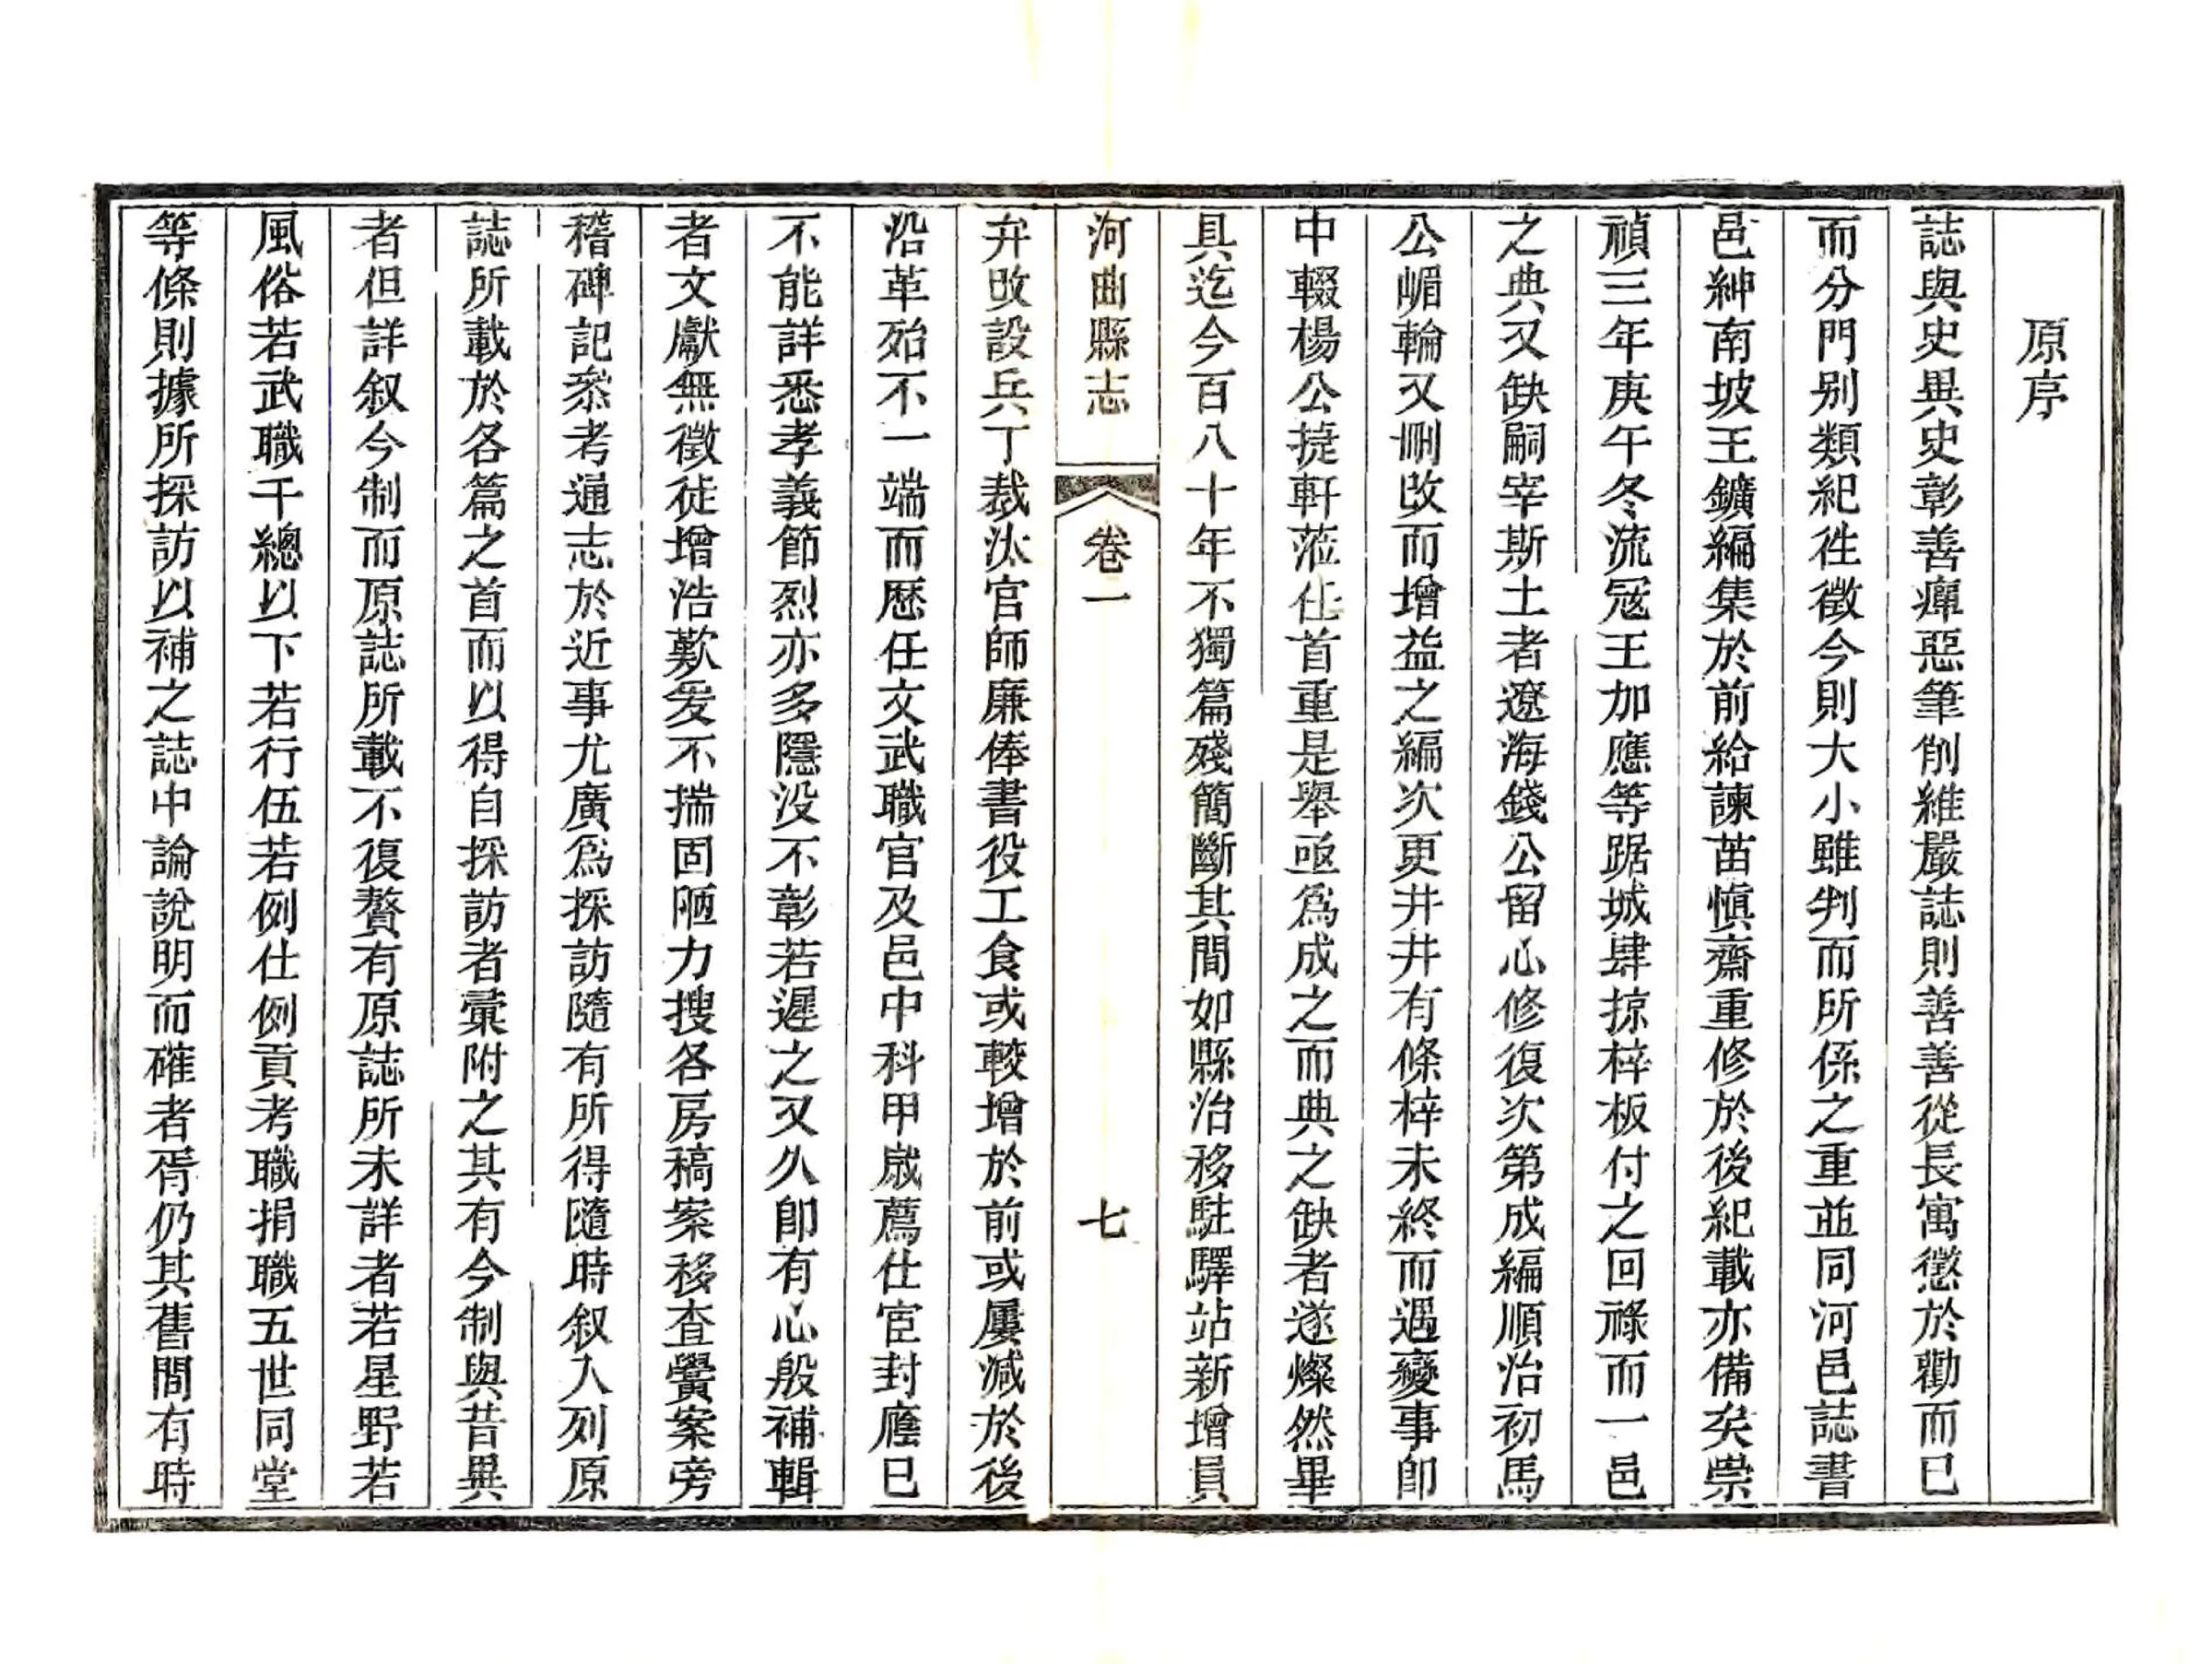 原序
誌與史異史彰善癉惡筆削維嚴誌則善善從長寓懲於勸而已
而分門别類紀徃徵今則大小雖判而所係之重並同河邑誌書
邑紳南坡王鑛編集於前給諫苗慎齋重修於後紀載亦備矣崇
禎三年庚午冬流冦王加應等踞城肆掠梓板付之回祿而一邑
之典又缺嗣宰斯土者遼海錢公留心修復次第成編順治初馬
公嵋輪又刪改而增益之編次更井井有條梓未終而遇變事卽
中輟楊公捷軒蒞仕首重是舉亟爲成之而典之缺者遂燦然畢
具迄今百八十年不獨篇殘簡斷其間如縣治移駐驛站新增員
河曲縣志 卷一 七
弁改設兵丁裁汰官師廉俸書役工食或較增於前或屢减於後
沿革殆不一端而歴任文武職官及邑中科甲歲薦仕宦封廕已
不能詳悉孝義節烈亦多隱没不彰若遲之又久卽有心殷補輯
者文獻無徵徒增浩歎爰不揣固陋力搜各房稿案移查黌案旁
稽碑記叅考通志於近事尤廣爲採訪隨有所得隨時叙入列原
誌所載於各篇之首而以得自採訪者彙附之其有今制與昔異
者但詳叙今制而原誌所載不復贅有原誌所未詳者若星野若
風俗若武職千總以下若行伍若例仕例貢考職捐職五世同堂
等條則據所採訪以補之誌中論說明而確者胥仍其舊間有時